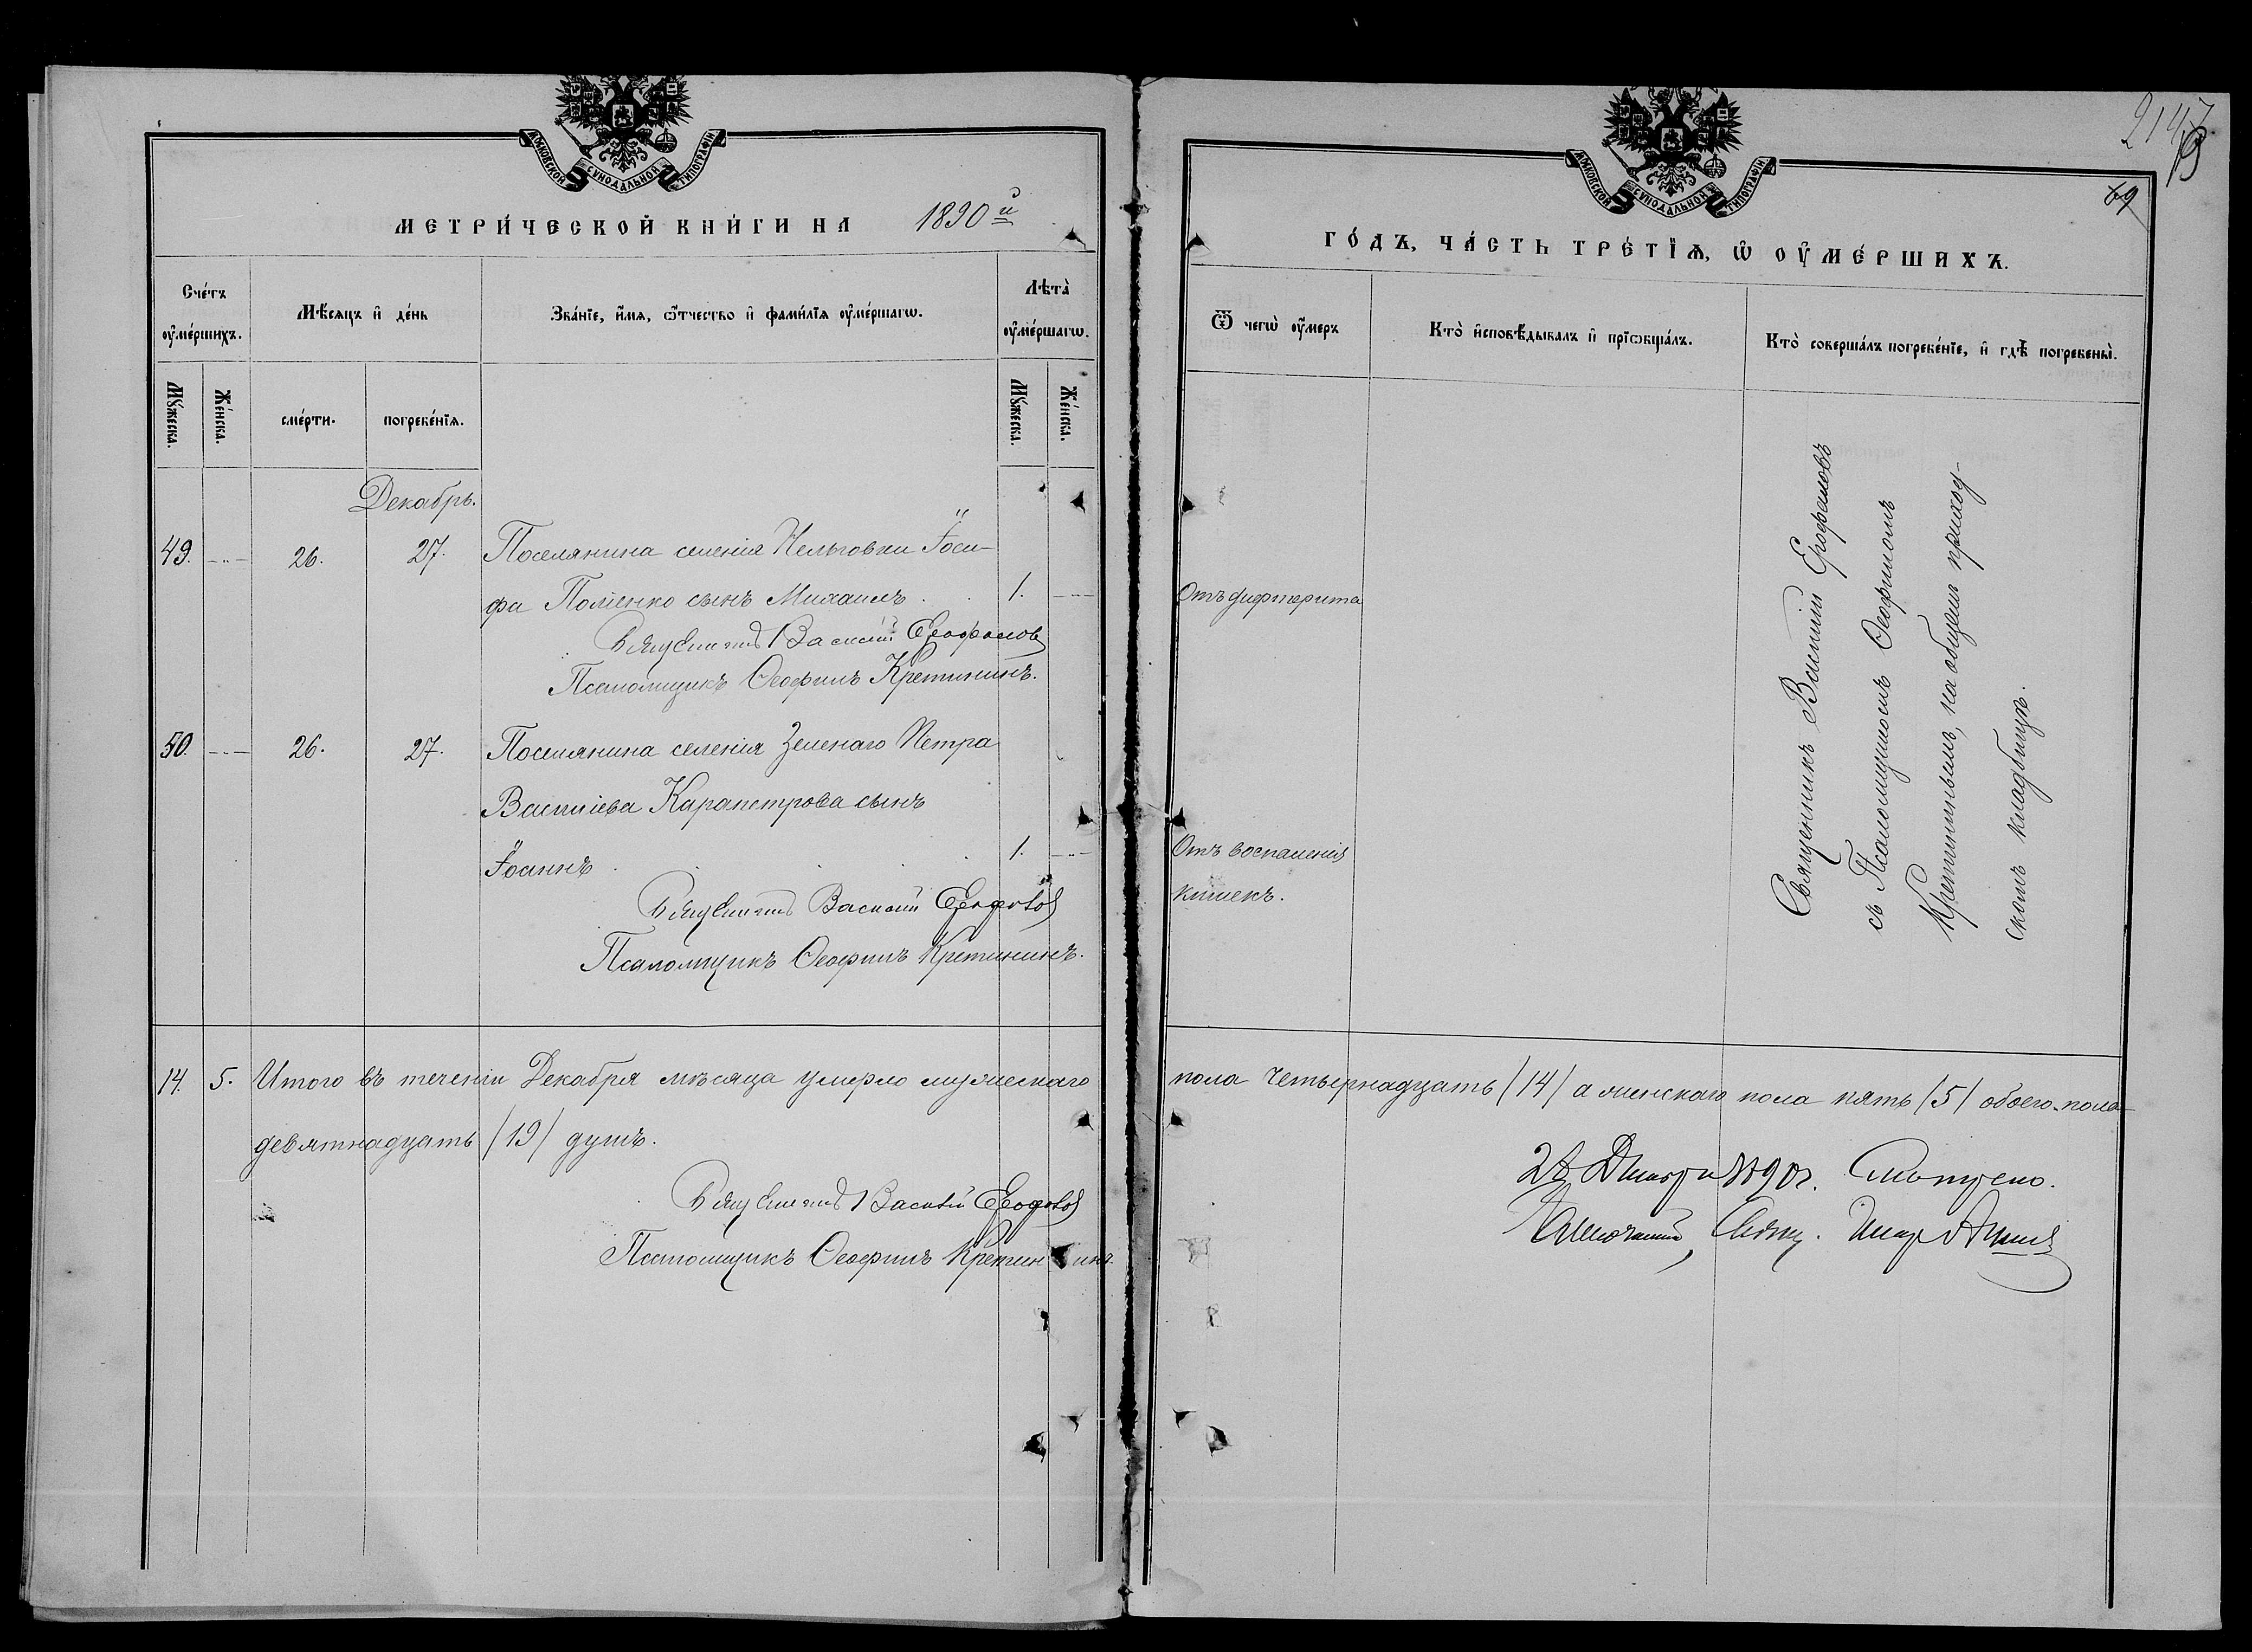 МОСКОВСКОЙ СѴНОДАЛЬНОЙ ТИПОГРАФІИ
МЕТРИ́ЧЕСКОЙ КНИ́ГИ НА 1890й
Сче́тъ ᲂу҆ме́ршихъ.
Мѣ́сяцъ и҆ де́нь
Зва́нїе, и҆́мя, ѻ҆́тчество и҆ фами́лїя ᲂу҆ме́ршагѡ.
Лѣта̀ ᲂу҆ме́ршагѡ.
Мꙋ́жеска.
Же́нска.
сме́рти.
погребе́нїя.
Мꙋ́жеска.
Же́нска.
Декабрь.
49. 26. 27. Поселянина селенія Нельговки Іоси-
фа Поменко сынъ Михаилъ 1.
Священникъ Василій Ерофаловъ
Псаломщикъ Ѳеофилъ Кретининъ.
50. 26. 27. Поселянина селенія Зеленаго Петра
Василіева Карапетрова сынъ
Іоаннъ 1.
Священникъ Василій
Псаломщикъ Ѳеофилъ Кретининъ.
14. 5. Итого въ теченіи Декабря мѣсяца умерло мужескаго
девятнадцать /19/ душъ.
Священникъ Василій
Псаломщикъ Ѳеофилъ Кретининъ.
69
МОСКОВСКОЙ СѴНОДАЛЬНОЙ ТИПОГРАФІИ
ГО́ДЪ, ЧА́СТЬ ТРЕ́ТЇѦ, Ѡ҆ ОУ҆МЕ́РШИХЪ.
Ѿ чегѡ̀ ᲂу҆́меръ
Кто̀ и҆сповѣ́дывалъ и҆ прїѡбща́лъ.
Кто̀ соверша́лъ погребе́нїе, и҆ гдѣ̀ погребены̀.
Отъ дифтерита
Отъ воспаленія
кишекъ.
Священникъ Василій Ерофаловъ
съ Псаломщикомъ Ѳеофиломъ
Кретининымъ, на общемъ приход-
скомъ кладбищѣ.
пола четырнадцать /14/ а женскаго пола пять /5/ обоего пола
Декабря 1890 г. Смотрено.